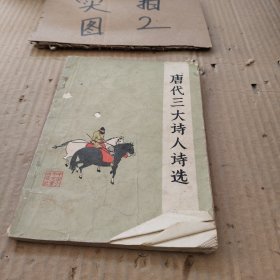 实拍
图2
唐代三大诗人诗选